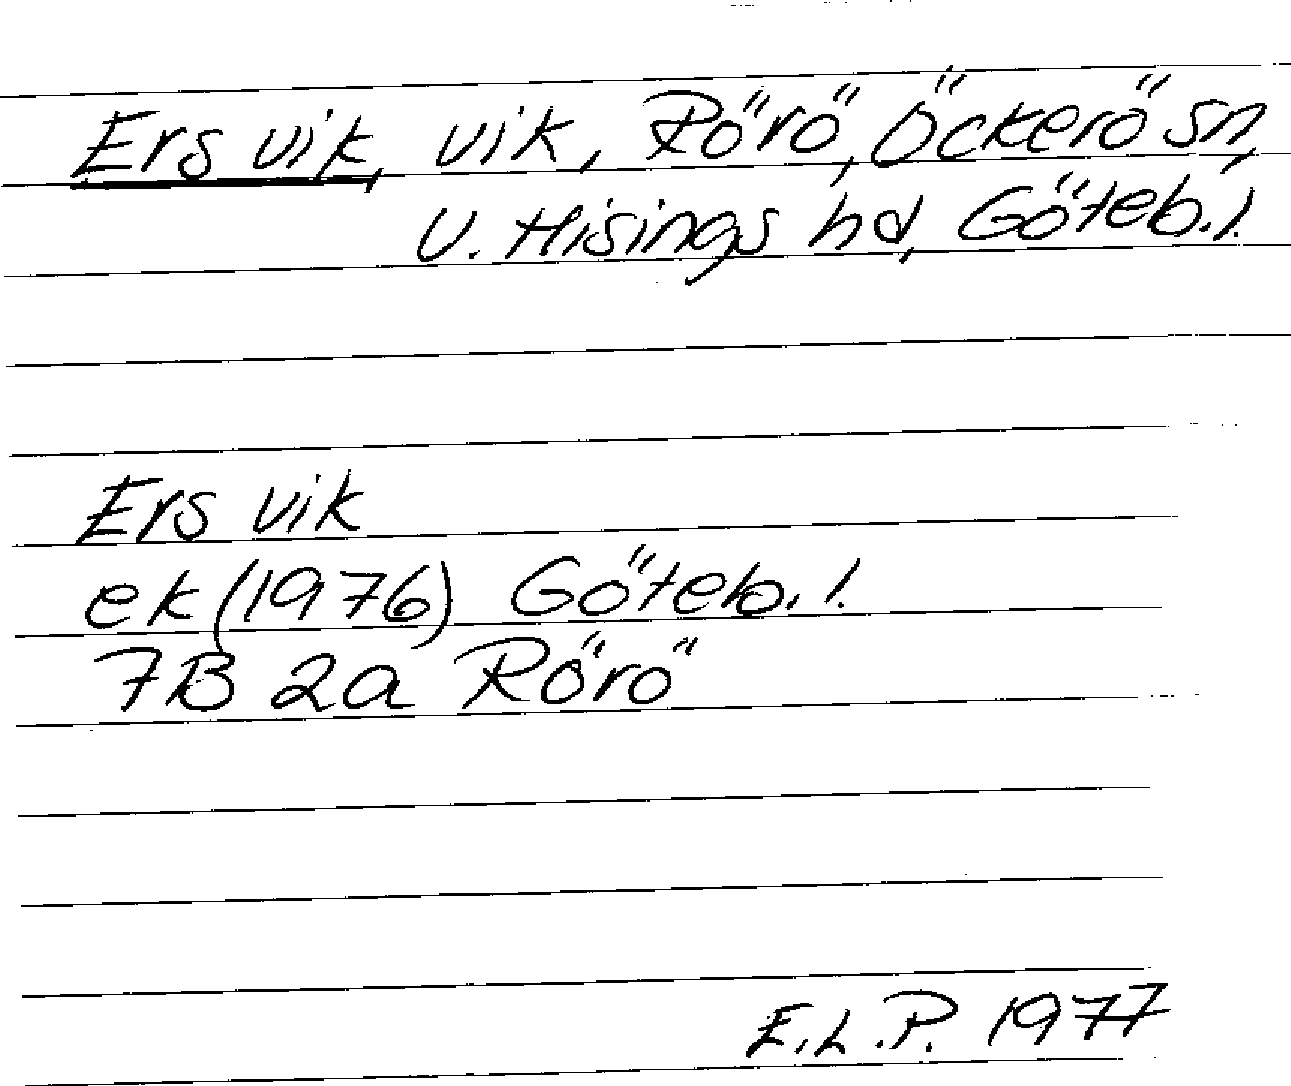 Ers vik, vik, Rörö, Öckerö sn,
V. Hisings hd, Göteb. l.
Ers vik
ek (1976) Göteb. l.
7B 2a Rörö
E.L.P. 1977